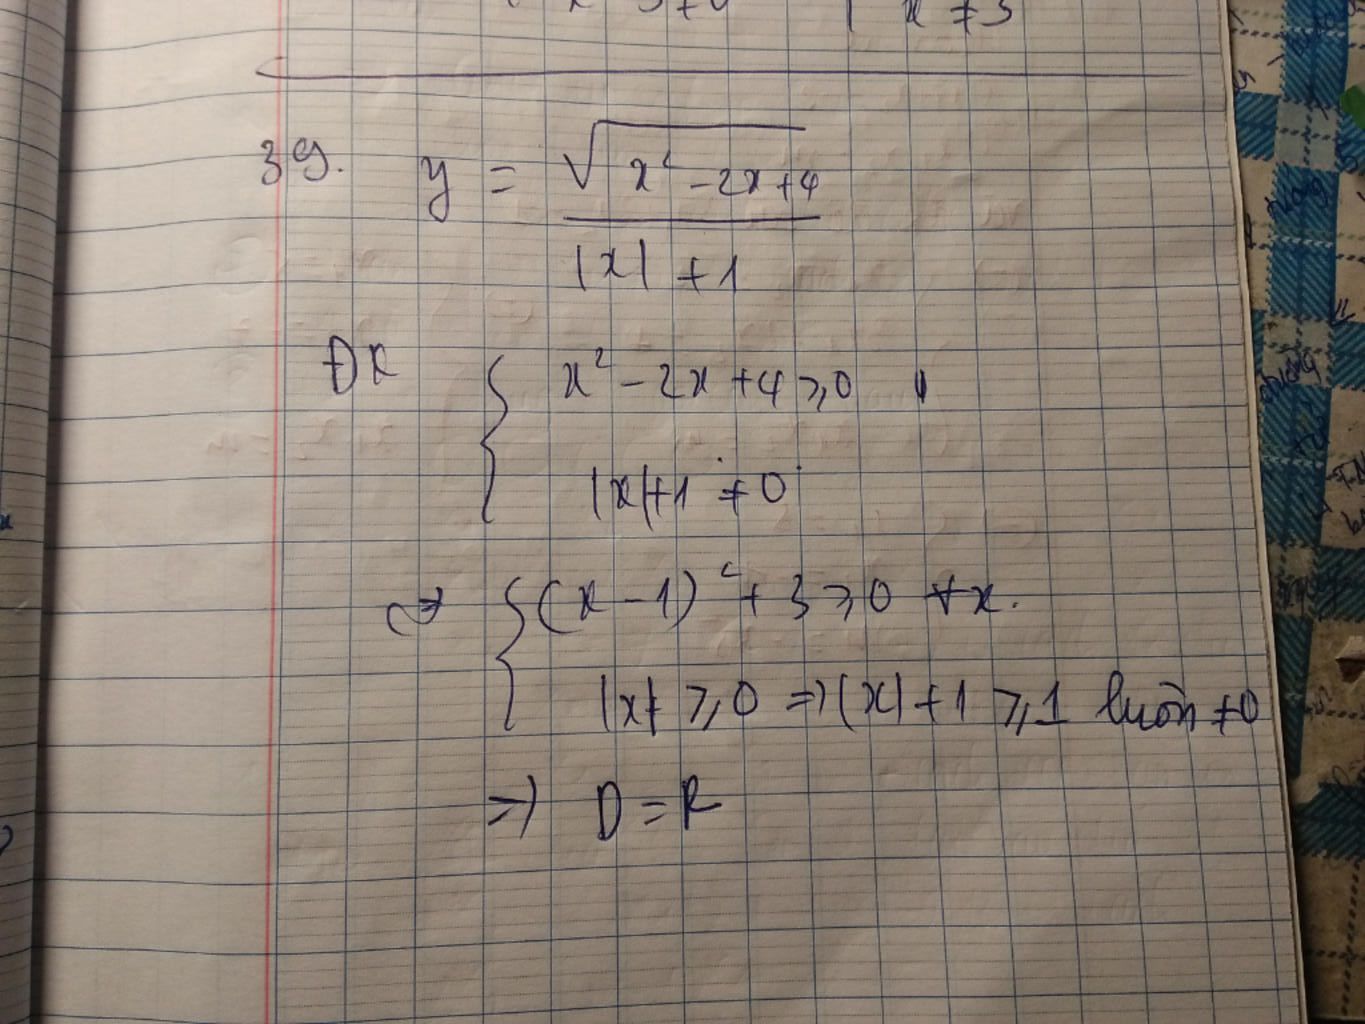 x ≠ 3
39. y = √(x² - 2x + 4) / (|x| + 1)
ĐK { x² - 2x + 4 ≥ 0
|x| + 1 ≠ 0
⇔ { (x - 1)² + 3 ≥ 0 ∀x.
|x| ≥ 0 ⇒ |x| + 1 ≥ 1 luôn ≠ 0
⇒ D = R